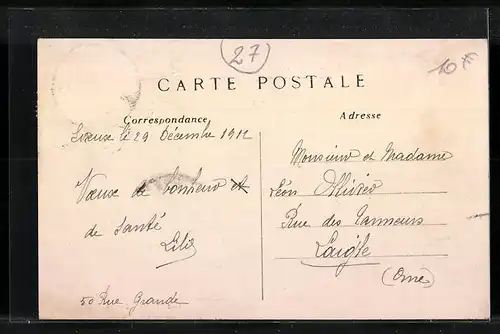 27
10 F
CARTE POSTALE
Correspondance
Adresse
le 29 Décembre 1912
Vœux de bonheur et
de santé
50 Rue Grande
Monsieur et Madame
Léon Ollivier
Rue des Tanneurs
Laigle
(Orne)